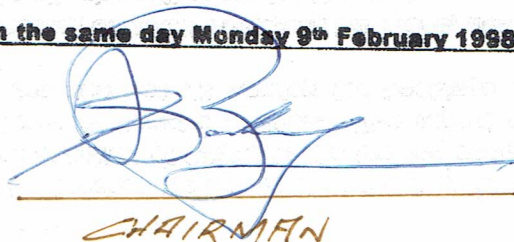 n the same day Monday 9th February 1998
CHAIRMAN